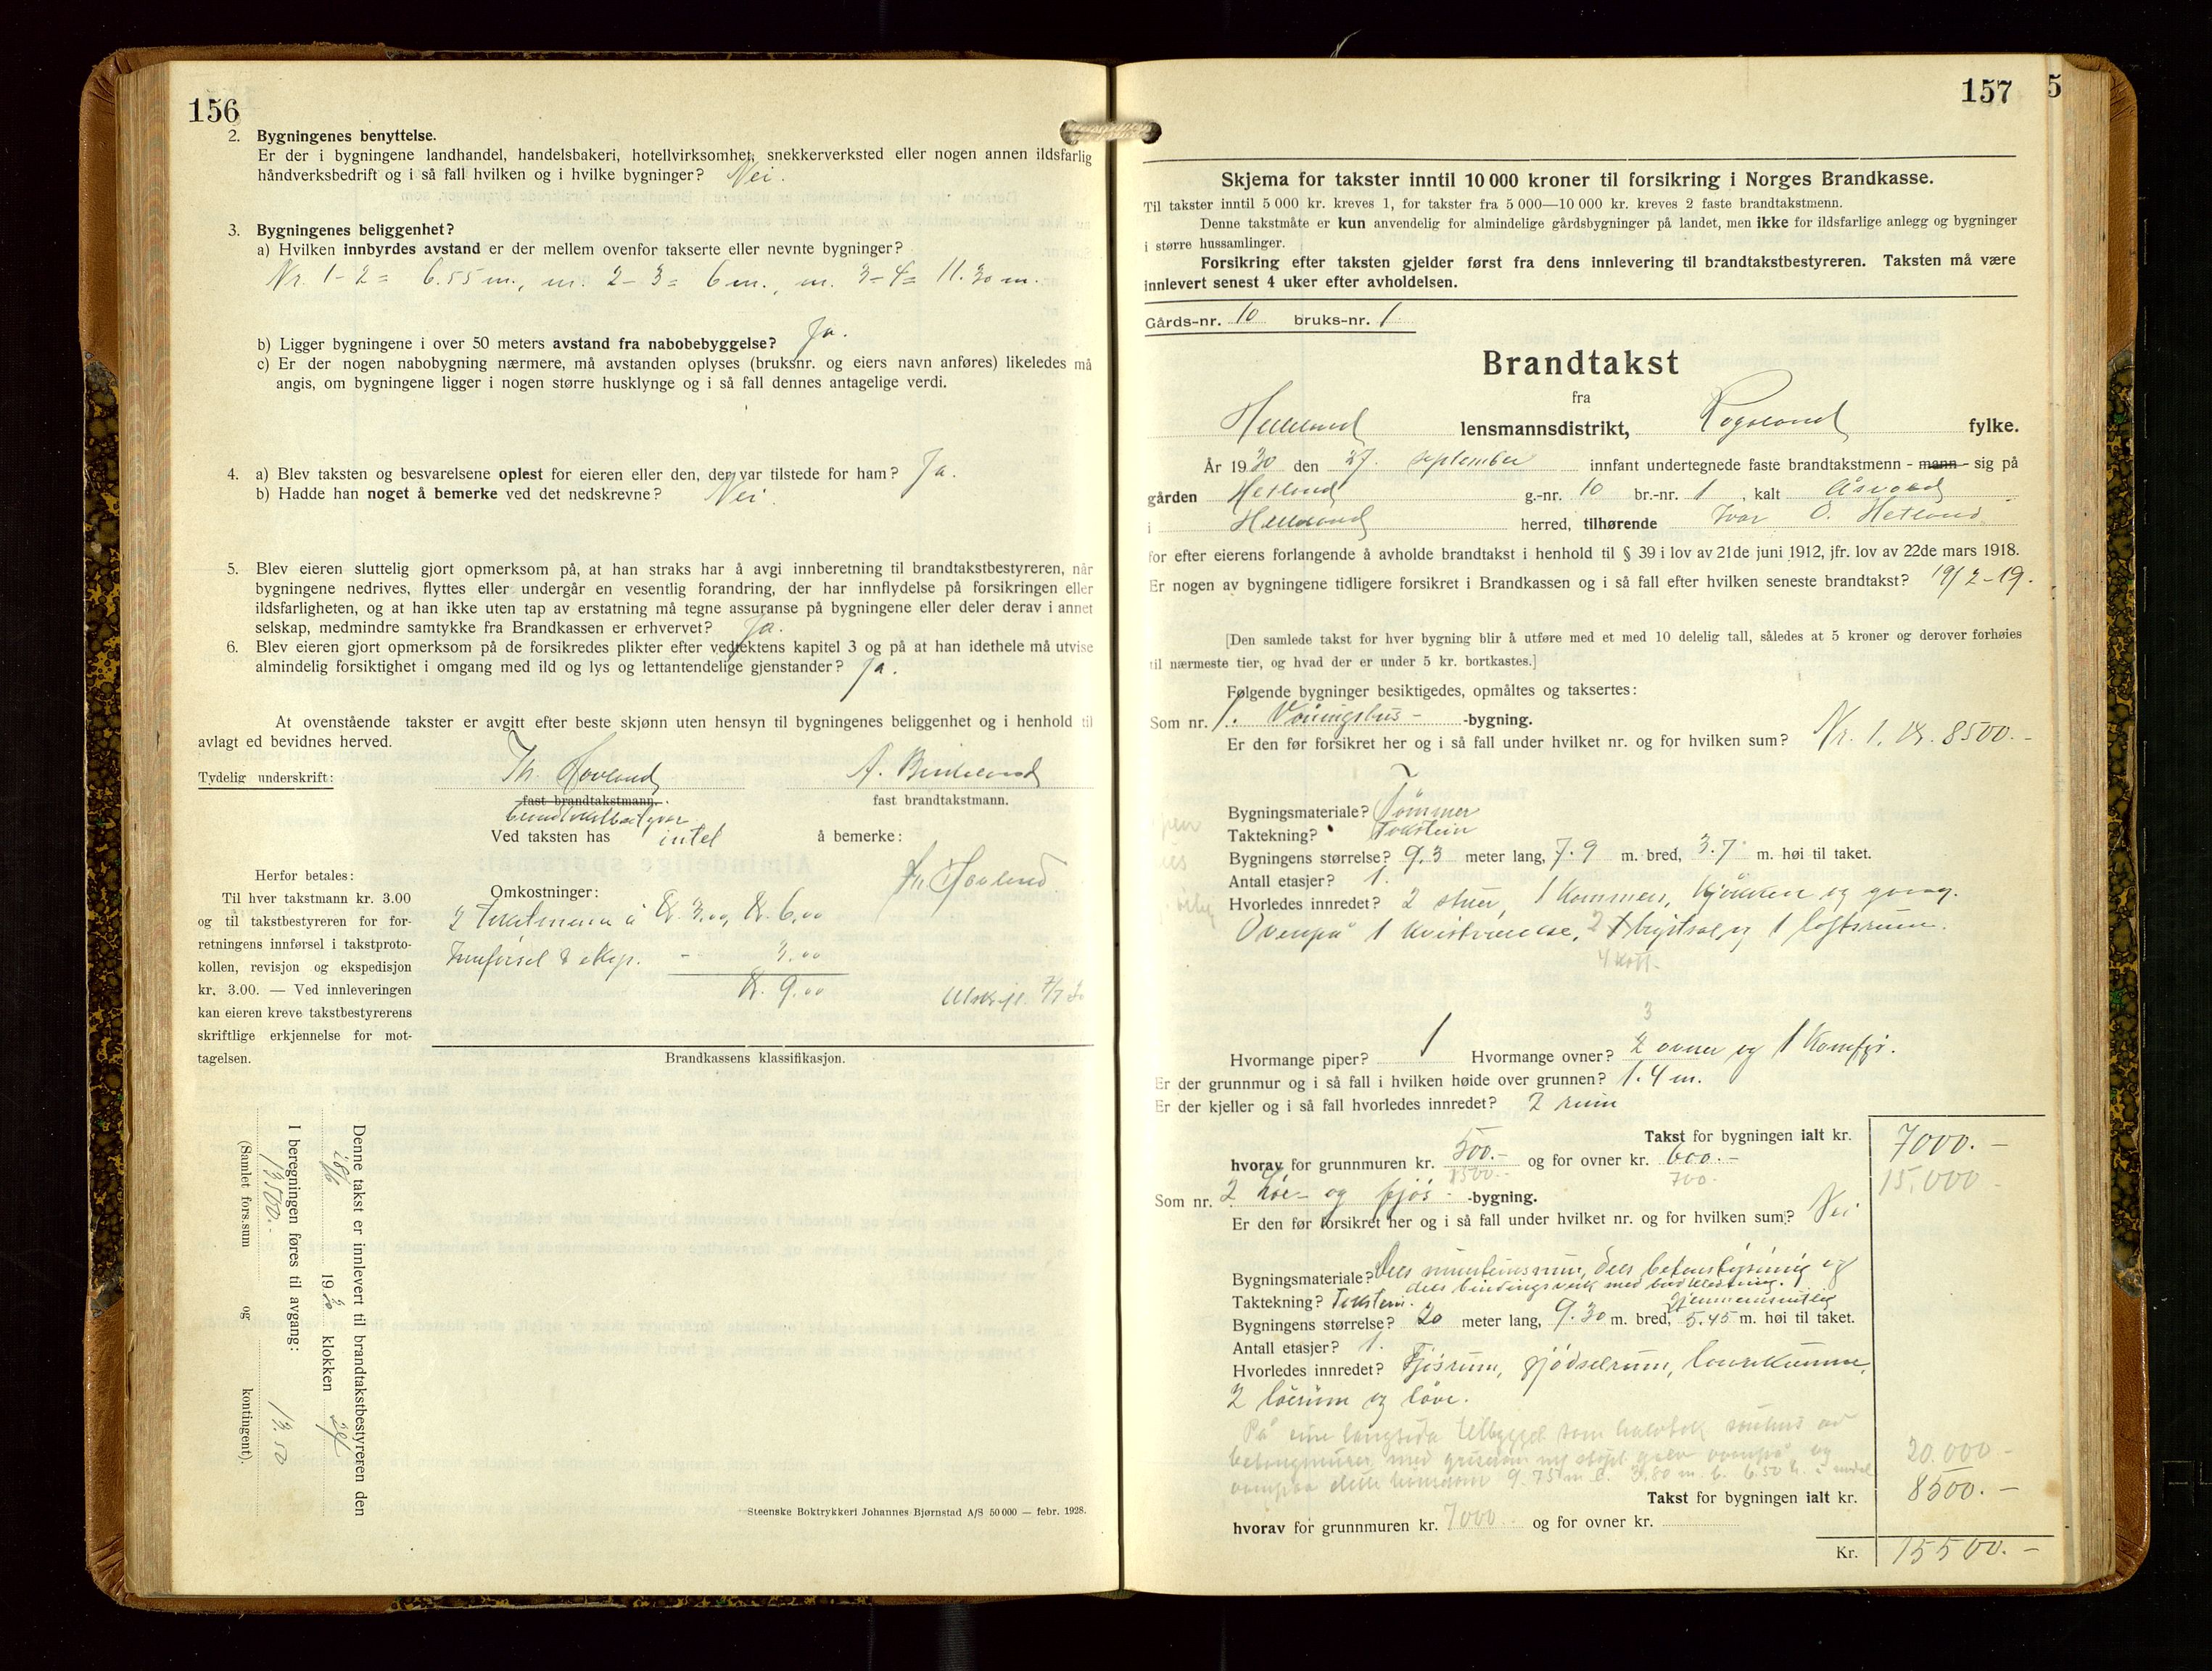 156
2. Bygningenes benyttelse.
Er der i bygningene landhandel, handelsbakeri, hotellvirksomhet, snekkerverksted eller nogen annen ildsfarlig
håndverksbedrift og i så fall hvilken og i hvilke bygninger? Nei.
3. Bygningenes beliggenhet?
a) Hvilken innbyrdes avstand er der mellem ovenfor takserte eller nevnte bygninger?
Nr. 1-2 = 6.55 m., nr. 2-3 = 6 m., nr. 3-4 = 11.30 m.
b) Ligger bygningene i over 50 meters avstand fra nabobebyggelse? Ja.
c) Er der nogen nabobygning nærmere, må avstanden oplyses (bruksnr. og eiers navn anføres) likeledes må
angis, om bygningene ligger i nogen større husklynge og i så fall dennes antagelige verdi.
4. a) Blev taksten og besvarelsene oplest for eieren eller den, der var tilstede for ham? Ja.
b) Hadde han noget å bemerke ved det nedskrevne? Nei.
5. Blev eieren sluttelig gjort opmerksom på, at han straks har å avgi innberetning til brandtakstbestyreren, når
bygningene nedrives, flyttes eller undergår en vesentlig forandring, der har innflydelse på forsikringen eller
ildsfarligheten, og at han ikke uten tap av erstatning må tegne assuranse på bygningene eller deler derav i annet
selskap, medmindre samtykke fra Brandkassen er erhvervet? Ja.
6. Blev eieren gjort opmerksom på de forsikredes plikter efter vedtektens kapitel 3 og på at han idethele må utvise
almindelig forsiktighet i omgang med ild og lys og lettantendelige gjenstander? Ja.
At ovenstående takster er avgitt efter beste skjønn uten hensyn til bygningenes beliggenhet og i henhold til
avlagt ed bevidnes herved.
Tydelig underskrift: Th. Hovland A. Birkeland
fast brandtakstmann. fast brandtakstmann.
Ved taksten has intet å bemerke:
Th. Hovland
Herfor betales:
Til hver takstmann kr. 3.00
og til takstbestyreren for for-
retningens innførsel i takstproto-
kollen, revisjon og ekspedisjon
kr. 3.00. — Ved innleveringen
kan eieren kreve takstbestyrerens
skriftlige erkjennelse for mot-
tagelsen.
Omkostninger:
2 takstmenn à Kr. 3,00, Kr. 6,00
Innførsel & eksp. - 3,00
Kr. 9,00
Brandkassens klassifikasjon.
Denne takst er innlevert til brandtakstbestyreren den
19 30 klokken
I beregningen føres til avgang:
13500.- 13.50
(Samlet fors.sum og kontingent).
Steenske Boktrykkeri Johannes Bjørnstad A/S 50 000 — febr. 1928.
157
5
Skjema for takster inntil 10 000 kroner til forsikring i Norges Brandkasse.
Til takster inntil 5 000 kr. kreves 1, for takster fra 5 000—10 000 kr. kreves 2 faste brandtakstmenn.
Denne takstmåte er kun anvendelig for almindelige gårdsbygninger på landet, men ikke for ildsfarlige anlegg og bygninger
i større hussamlinger.
Forsikring efter taksten gjelder først fra dens innlevering til brandtakstbestyreren. Taksten må være
innlevert senest 4 uker efter avholdelsen.
Gårds-nr. 10 bruks-nr. 1
Brandtakst
fra
Helleland lensmannsdistrikt, Rogaland fylke.
År 19 30 den 27. september innfant undertegnede faste brandtakstmenn - mann - sig på
gården Hetland g.-nr. 10 br.-nr. 1, kalt
i Helleland herred, tilhørende Ivar O. Hetland
for efter eierens forlangende å avholde brandtakst i henhold til § 39 i lov av 21de juni 1912, jfr. lov av 22de mars 1918.
Er nogen av bygningene tidligere forsikret i Brandkassen og i så fall efter hvilken seneste brandtakst? 19/2-19.
[Den samlede takst for hver bygning blir å utføre med et med 10 delelig tall, således at 5 kroner og derover forhøies
til nærmeste tier, og hvad der er under 5 kr. bortkastes.]
Følgende bygninger besiktigedes, opmåltes og taksertes:
Som nr. 1. Våningshus- -bygning.
Er den før forsikret her og i så fall under hvilket nr. og for hvilken sum? Nr. 1, kr. 8500.-
Bygningsmateriale? Tømmer
Taktekning? Takstein
Bygningens størrelse? 9.3 meter lang, 7.9 m. bred, 3.7 m. høi til taket.
Antall etasjer? 1.
Hvorledes innredet? 2 stuer, 1 kammer, kjøkken og gang.
Ovenpå 1 kvistværelse, 2 og 1 loftsrum.
3
Hvormange piper? 1 Hvormange ovner? 2 ovner og 1 komfyr.
Er der grunnmur og i så fall i hvilken høide over grunnen? 1.4 m.
Er der kjeller og i så fall hvorledes innredet? 2 rum
Takst for bygningen ialt kr. 7000.-
hvorav for grunnmuren kr. 500.- og for ovner kr. 600.-
1500.- 700.- 15.000 -
Som nr. 2 Løe- og fjøs- -bygning.
Er den før forsikret her og i så fall under hvilket nr. og for hvilken sum? Nei
Bygningsmateriale? Dels murstensmur, dels betongstøpning og
dels bindingsverk med bordkledning.
Taktekning? Takstein. gjennemsnitlig
Bygningens størrelse? 20 meter lang, 9.30 m. bred, 5.45 m. høi til taket.
Antall etasjer? 1.
Hvorledes innredet? Fjøsrum, gjødselrum, landkumme,
2 løerum og låve.
På eine langsida tilbygget som halvtak av
betongmurer med ny støpt golv ovenpå og
ovenpaa dette 9.75 m l. 3.80 m. b. 6.50 h.
20.000 -
Takst for bygningen ialt kr. 8500.-
hvorav for grunnmuren kr. 7000.- og for ovner kr.
Kr. 15500.-